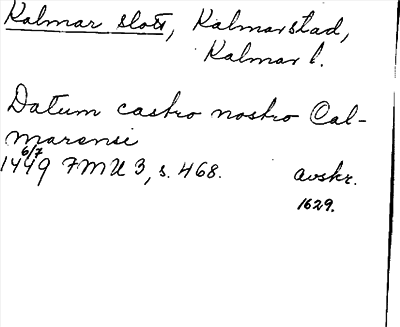 Kalmar slott, Kalmar stad,
Kalmar l.
Datum castro nostro Cal-
marensi
6/7
1449 FMU 3, s. 468. avskr.
1629.